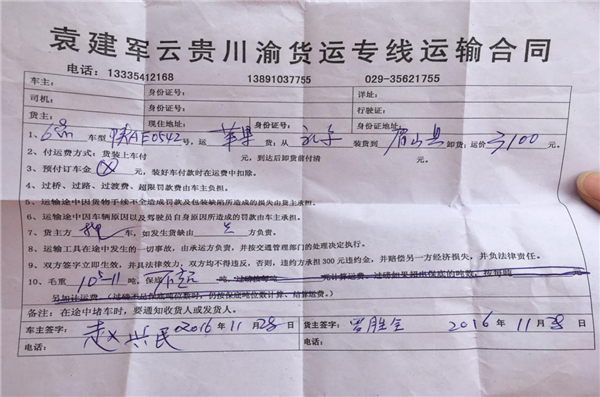 袁建军云贵川渝货运专线运输合同
电话：13335412168 13891037755 029-35621755
车主： 身份证号： 详址：
司机： 身份证号： 行驶证：
货主： 现住地址： 身份证号： 身份证地址：
1、 车型 陕AE0542号，运 苹果 货；从 装货到 眉山县 卸货；运价 3100 元。
2、付运费方式：货装上车付 元，到达后卸货前付清 元。
3、预付订车金 元，装好车付款时在运费中扣除。
4、过桥、过路、过渡费、超限罚款费由车主负担。
5、运输途中因货物手续不全造成罚款及包装缺陷所造成的损失由货主承担。
6、运输途中因车辆原因以及驾驶员自身原因所造成的罚款由车主承担。
7、货主方 车，如发生货缺由 方负责。
8、运输工具在途中发生的一切事故，由承运方负责，并按交通管理部门的处理决定执行。
9、双方签字立即生效，并具法律效力，双方均不得违反，否则，违约方承担300元违约金，并赔偿另一方经济损失，并负法律责任。
10、毛重 吨，保底
备注：在途中堵车时，要通知收货人或发货人。
车主签字： 2016年11月28日 货主签字：罗胜全 2016年11月28日
电话： 电话：